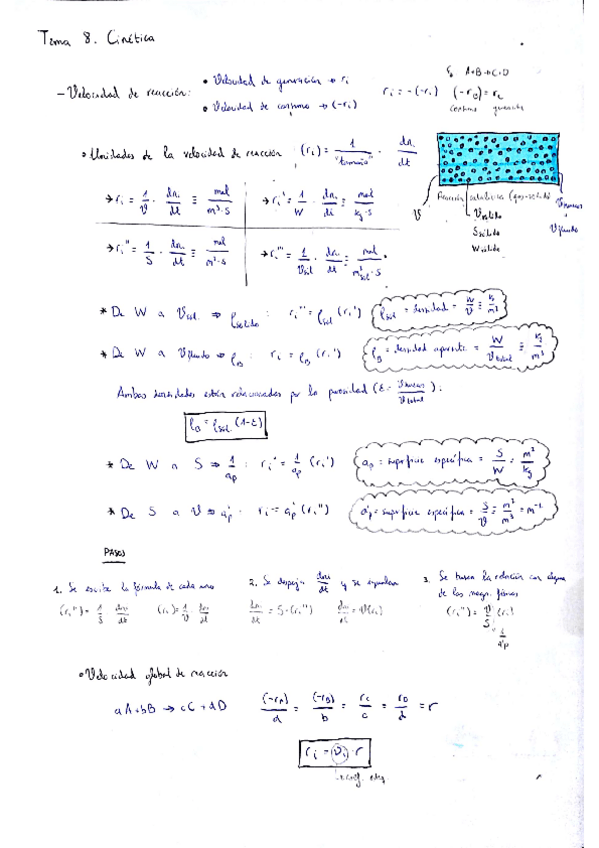 Tema 8. Cinética
- Velocidad de reacción:
• Velocidad de generación → ri
• Velocidad de consumo → (-ri)
ri = -(-ri)
Si A+B→C+D
(-rB) = rC
consumo generación
• Unidades de la velocidad de reacción (ri) = 1/"tamaño" · dni/dt
→ ri = 1/V · dni/dt ≡ mol/m³·s
→ ri' = 1/W · dni/dt ≡ mol/kg·s
→ ri'' = 1/S · dni/dt ≡ mol/m²·s
→ ri''' = 1/Vsol · dni/dt ≡ mol/m³sol·s
Reacción catalítica (gas-sólido)
V
Vsólido
Ssólido
Wsólido
Vhuecos
Vfluido
* De W a Vsol. ⇒ ρsólido : ri''' = ρsol (ri')
ρsol = densidad = W/V ≡ kg/m³
* De W a Vfluido ⇒ ρB : ri = ρB (ri')
ρB = densidad aparente = W/Vtotal ≡ kg/m³
Ambas densidades están relacionadas por la porosidad (ε = Vhuecos/Vtotal) :
ρB = ρsol (1-ε)
* De W a S ⇒ 1/ap : ri'' = 1/ap (ri')
ap = superficie específica = S/W = m²/kg
* De S a V ⇒ ap' : ri = ap' (ri'')
ap' = superficie específica = S/V = m²/m³ = m⁻¹
PASOS
1. Se escribe la fórmula de cada uno
(ri'') = 1/S dni/dt (ri) = 1/V · dni/dt
2. Se despeja dni/dt y se igualan
dni/dt = S·(ri'') dni/dt = V(ri)
3. Se busca la relación con alguna
de las magn. físicas
(ri'') = V/S (ri)
S/ap'
• Velocidad global de reacción
aA+bB → cC+dD
(-rA)/a = (-rB)/b = rC/c = rD/d = r
ri = νi · r
coef. esteq